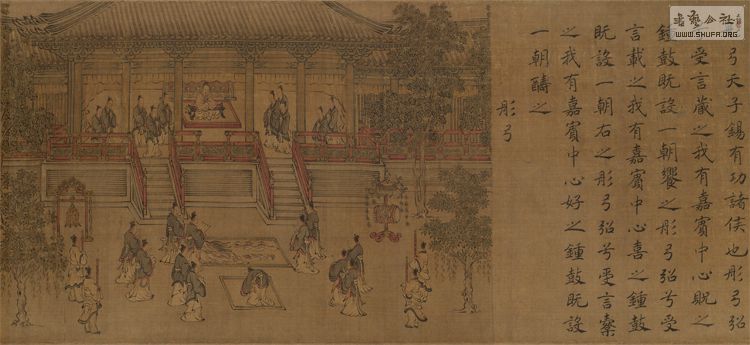 弓天子錫有功諸侯也彤弓弨
受言藏之我有嘉賓中心貺之
鍾鼓既設一朝饗之彤弓弨兮受
言載之我有嘉賓中心喜之鍾鼓
既設一朝右之彤弓弨兮受言櫜
之我有嘉賓中心好之鍾鼓既設
一朝醻之
彤弓
WWW.SHUFA.ORG